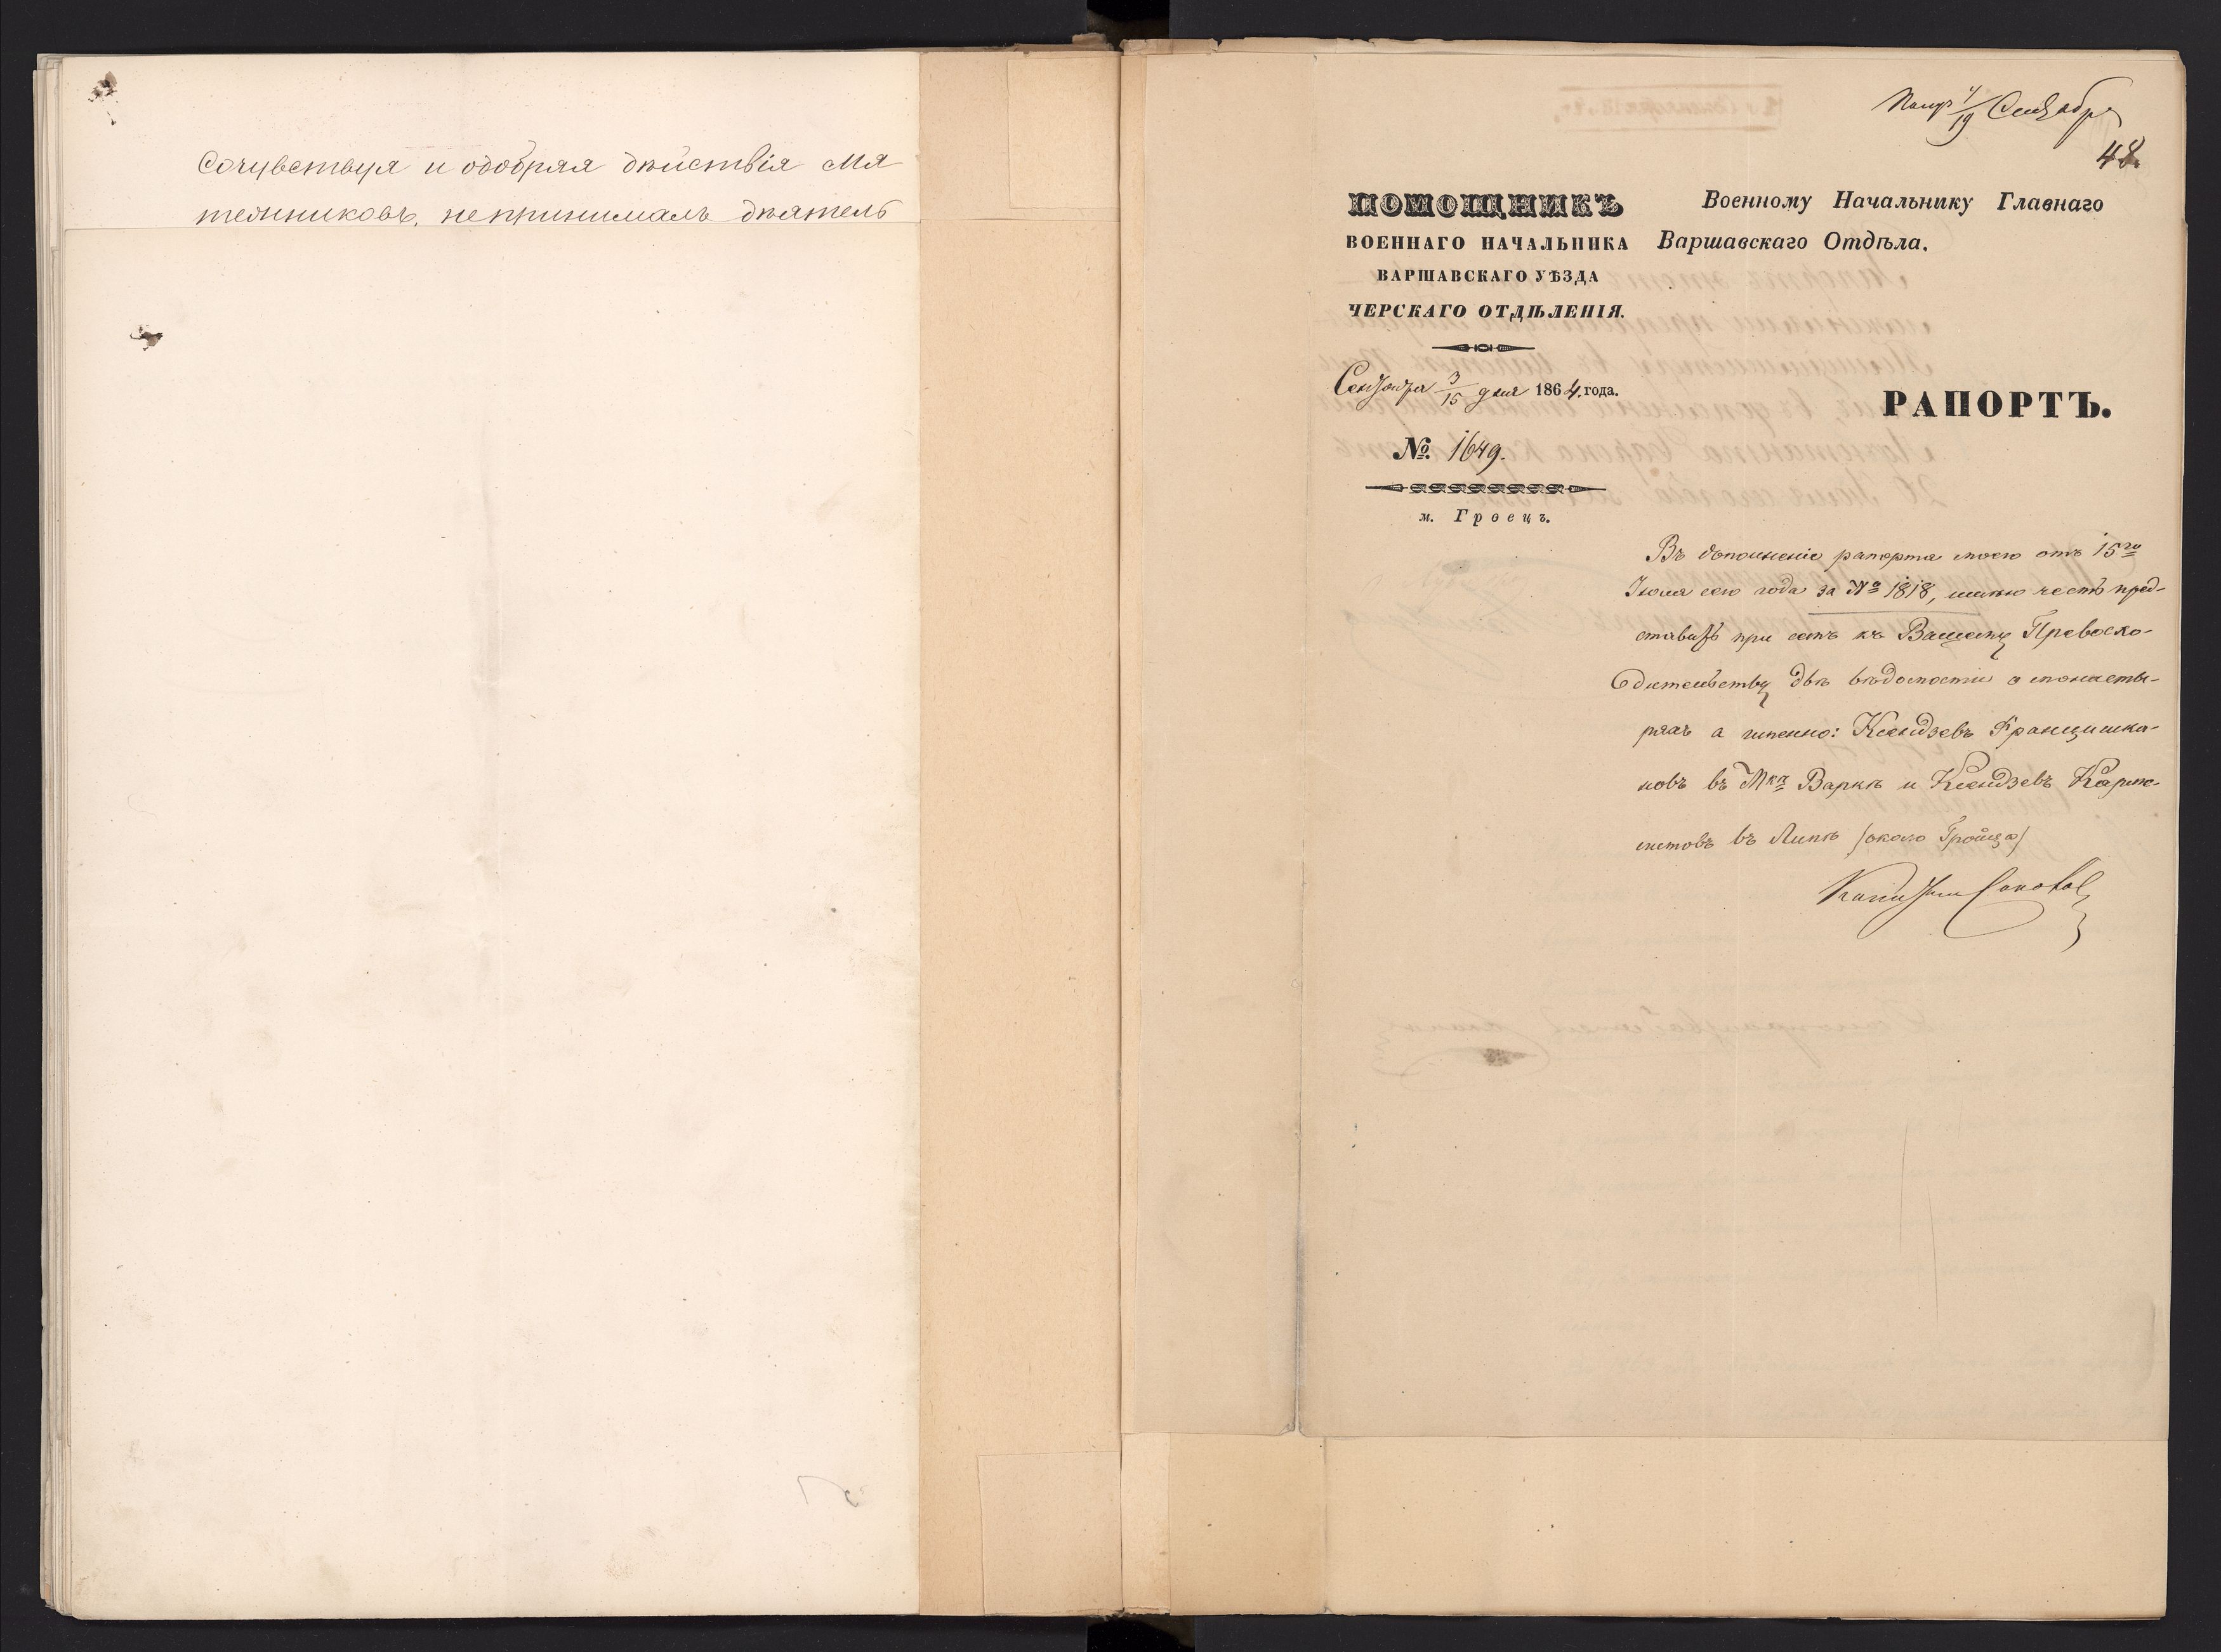 Сочувствуя и одобряя дѣйствія мя
тежниковъ, не принималъ дѣятель
Сентября
48.
ПОМОЩНИКЪ
ВОЕННАГО НАЧАЛЬНИКА
ВАРШАВСКАГО УѢЗДА
ЧЕРСКАГО ОТДѢЛЕНІЯ.
Сентября 3/15 дня 1864 года.
№ 1649.
м. Гроецъ.
Военному Начальнику Главнаго
Варшавскаго Отдѣла.
РАПОРТЪ.
Въ дополненіе рапорта моего отъ 15го
Іюля сего года за № 1818, имѣю честь пред-
ставить при семъ къ Вашему Превосхо-
дительству двѣ вѣдомости о монасты-
ряхъ а именно: Ксендзевъ Францишка-
новъ въ Мкѣ Варкѣ и Ксендзевъ Карме-
литовъ въ Липѣ (около Гройца)
Капитанъ